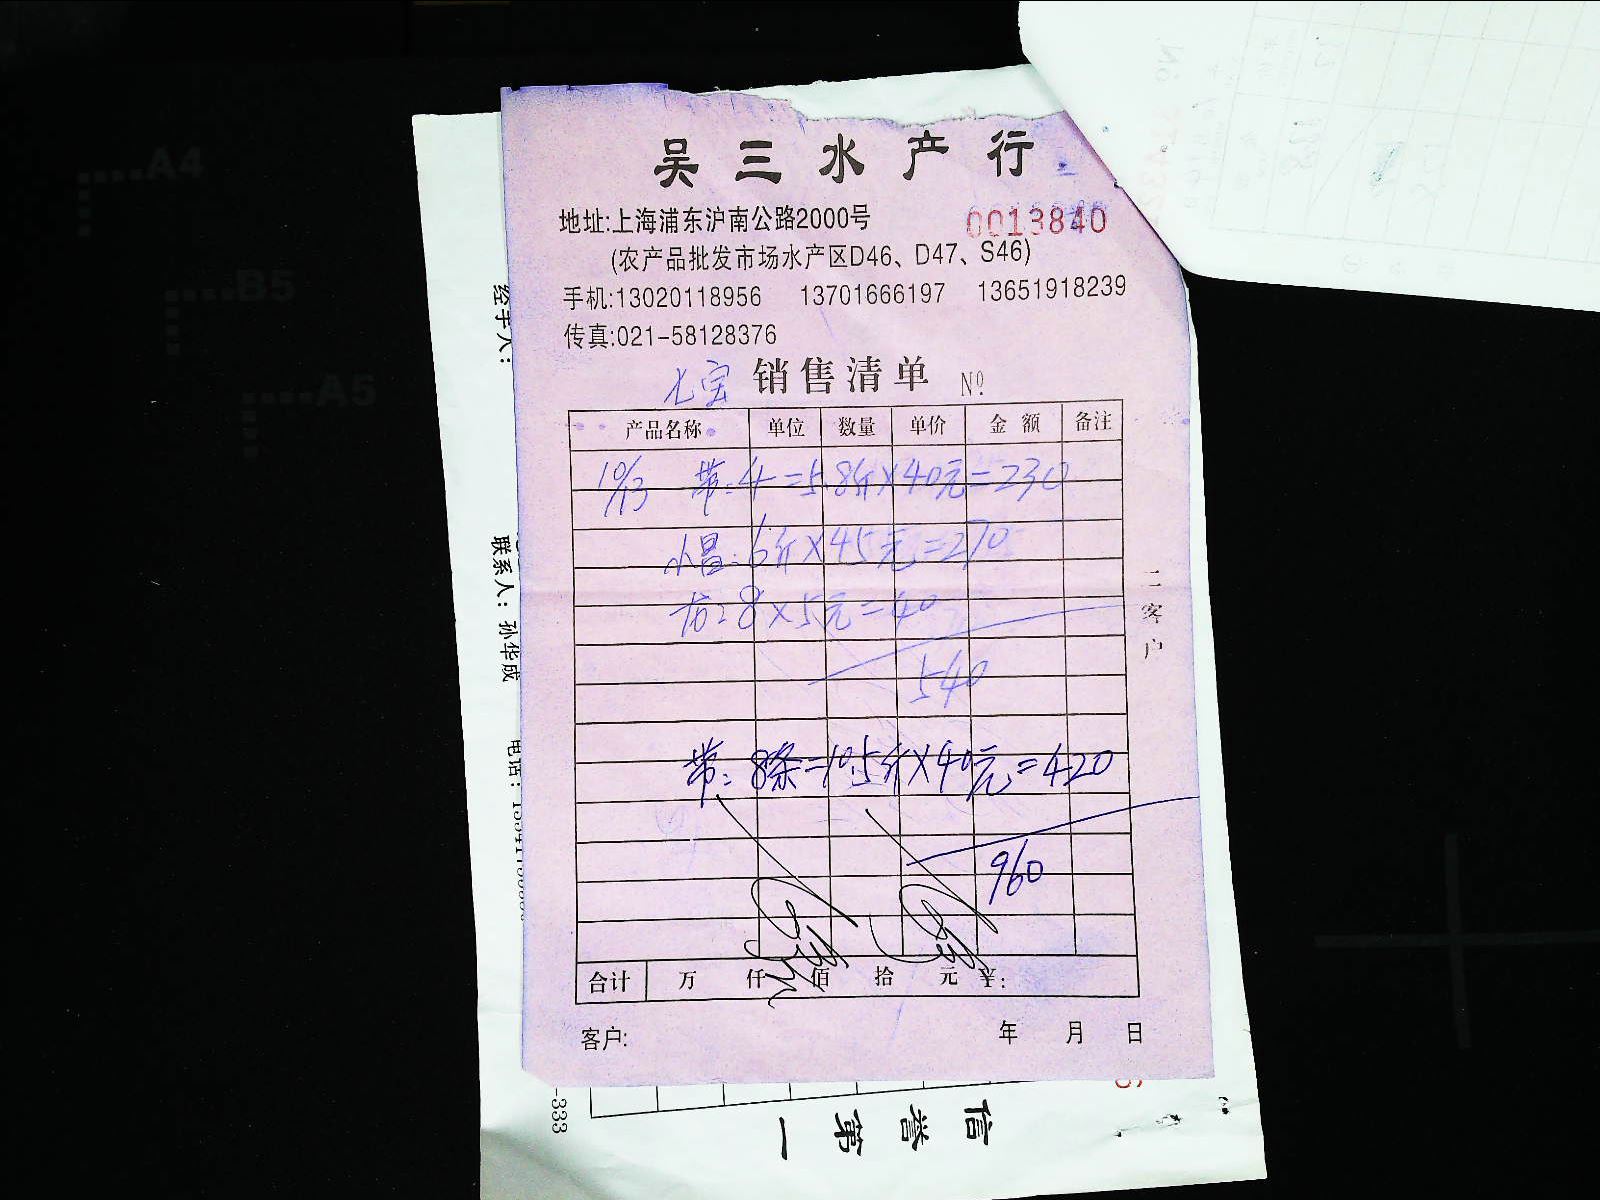 A4
B5
A5
吴三水产行
地址:上海浦东沪南公路2000号
0013840
(农产品批发市场水产区D46、D47、S46)
手机:13020118956 13701666197 13651918239
传真:021-58128376
七宝 销售清单 Nº
产品名称 单位 数量 单价 金额 备注
10/13 带:4=5.8斤×40元=230
小昌:6斤×45元=270
8×5元=40
540
带:8条=10.5斤×40元=420
960
合计 万 仟 佰 拾 元 ¥:
客户: 年 月 日
二客户
经手人:
联系人:孙华成
电话:
-333
信誉第一